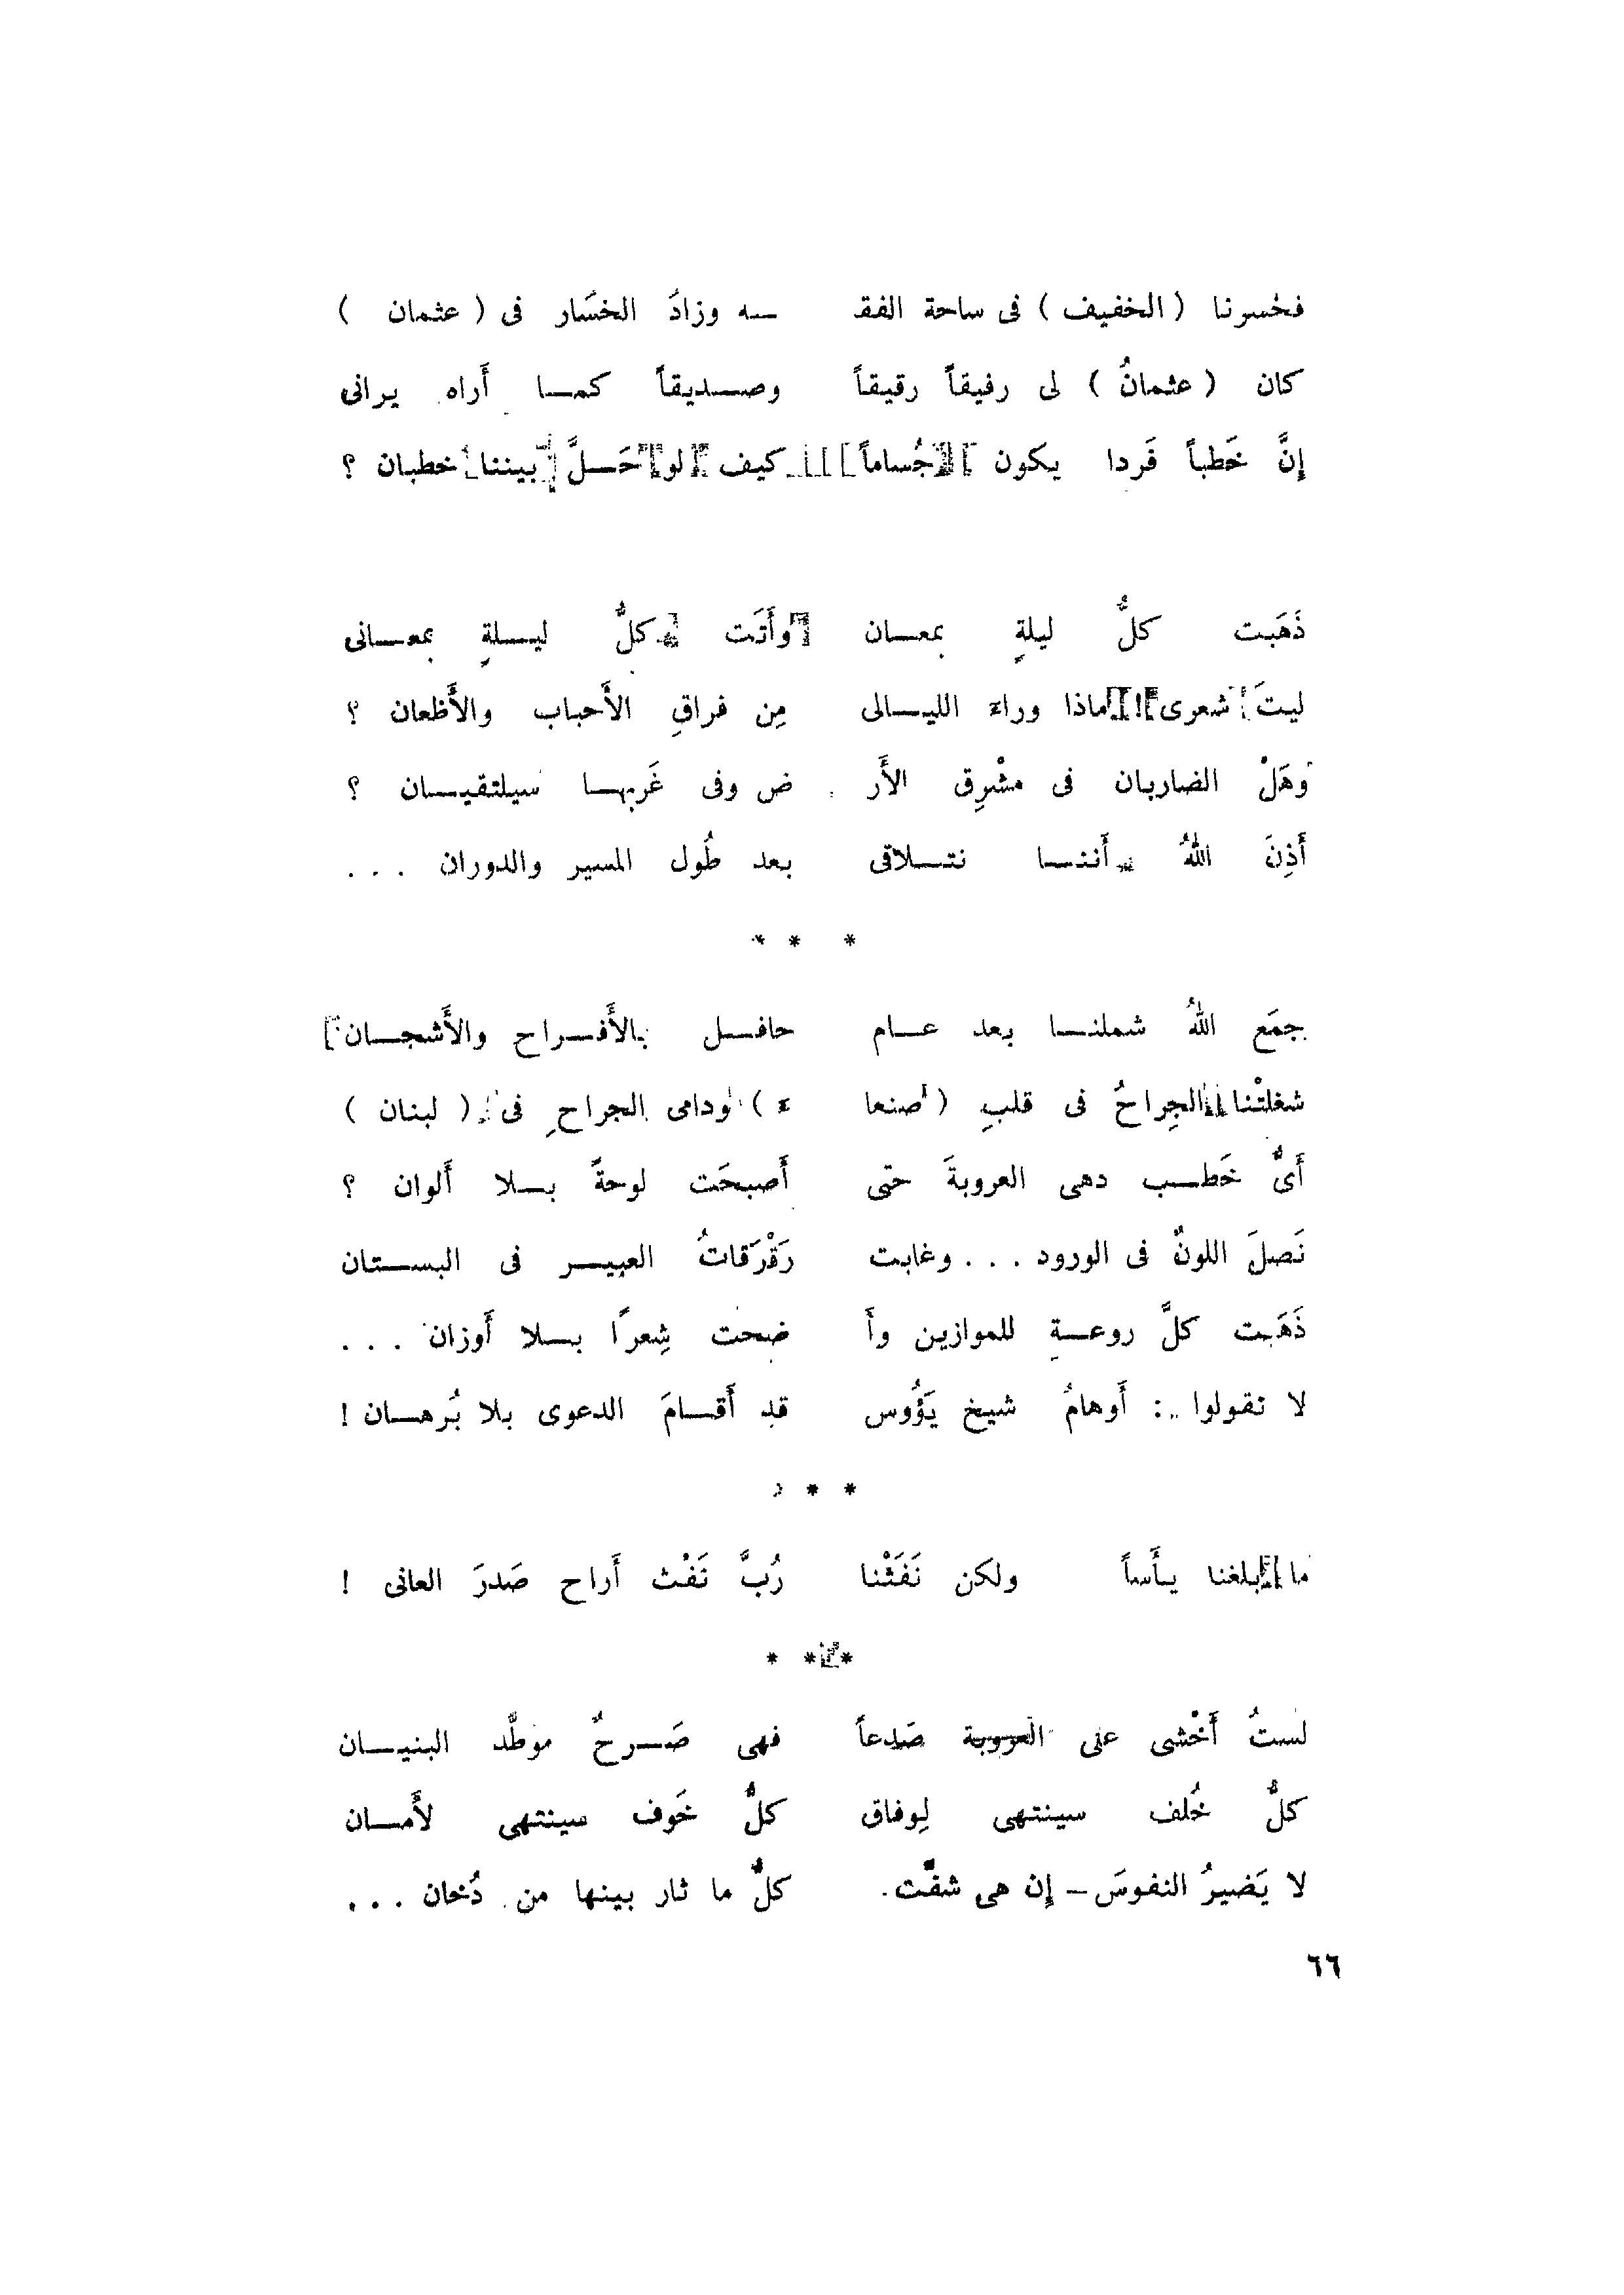 فخسرنا ( الخفيف ) فى ساحة الفقـ ـه وزادَ الخسَار فى ( عثمان )
كان ( عثمانُ ) لى رفيقاً رقيقاً وصـديقاً كمـا أَراه يرانى
إنَّ خَطباً فَردا يكون جُساماً كيف لو حَـلَّ بيننا خطبان ؟
ذَهَبت كلُّ ليلةٍ بمعـان وأَتَت كلُّ ليـلةٍ بمعـانى
ليتَ شعرى ! ماذا وراء الليـالى مِن فراقِ الأَحباب والأَظعان ؟
وهَلْ الضاربان فى مشْرِق الأَر ض وفى غَربهـا سيلتقيـان ؟
أَذِنَ اللهُ أَننـا نتـلاقى بعد طُول المسير والدوران ...
* * *
جمَع اللهُ شملنـا بعد عـام حافـل بالأَفـراح والأَشجـان
شغلتْنا الجِراحُ فى قلبِ ( صنعا ء ) ودامى الجراحِ فى ( لبنان )
أَىُّ خَطـب دهى العروبةَ حتى أَصبحَت لوحةً بـلا أَلوان ؟
نَصلَ اللونُ فى الورود ... وغابت رَقْرَقاتُ العبيـر فى البسـتان
ذَهَبت كلَّ روعـةٍ للموازين وأَ ضحت شِعرًا بـلا أَوزان ...
لا تقولوا : أَوهامُ شيخ يَؤُوس قد أَقـامَ الدعوى بلا بُرهـان !
* * *
ما بلغنا يـأَساً ولكن نَفَثْنا رُبَّ نَفْث أَراح صَدرَ العانى !
* * *
لستُ أَخْشى على العروبة صَدعاً فهى صَـرحٌ موطَّد البنيـان
كلُّ خُلف سينتهى لِوفاق كلُّ خَوف سينتهى لأَمـان
لا يَضيرُ النفوسَ – إن هى شفَّت كلُّ ما ثار بينها من دُخان ...
٦٦